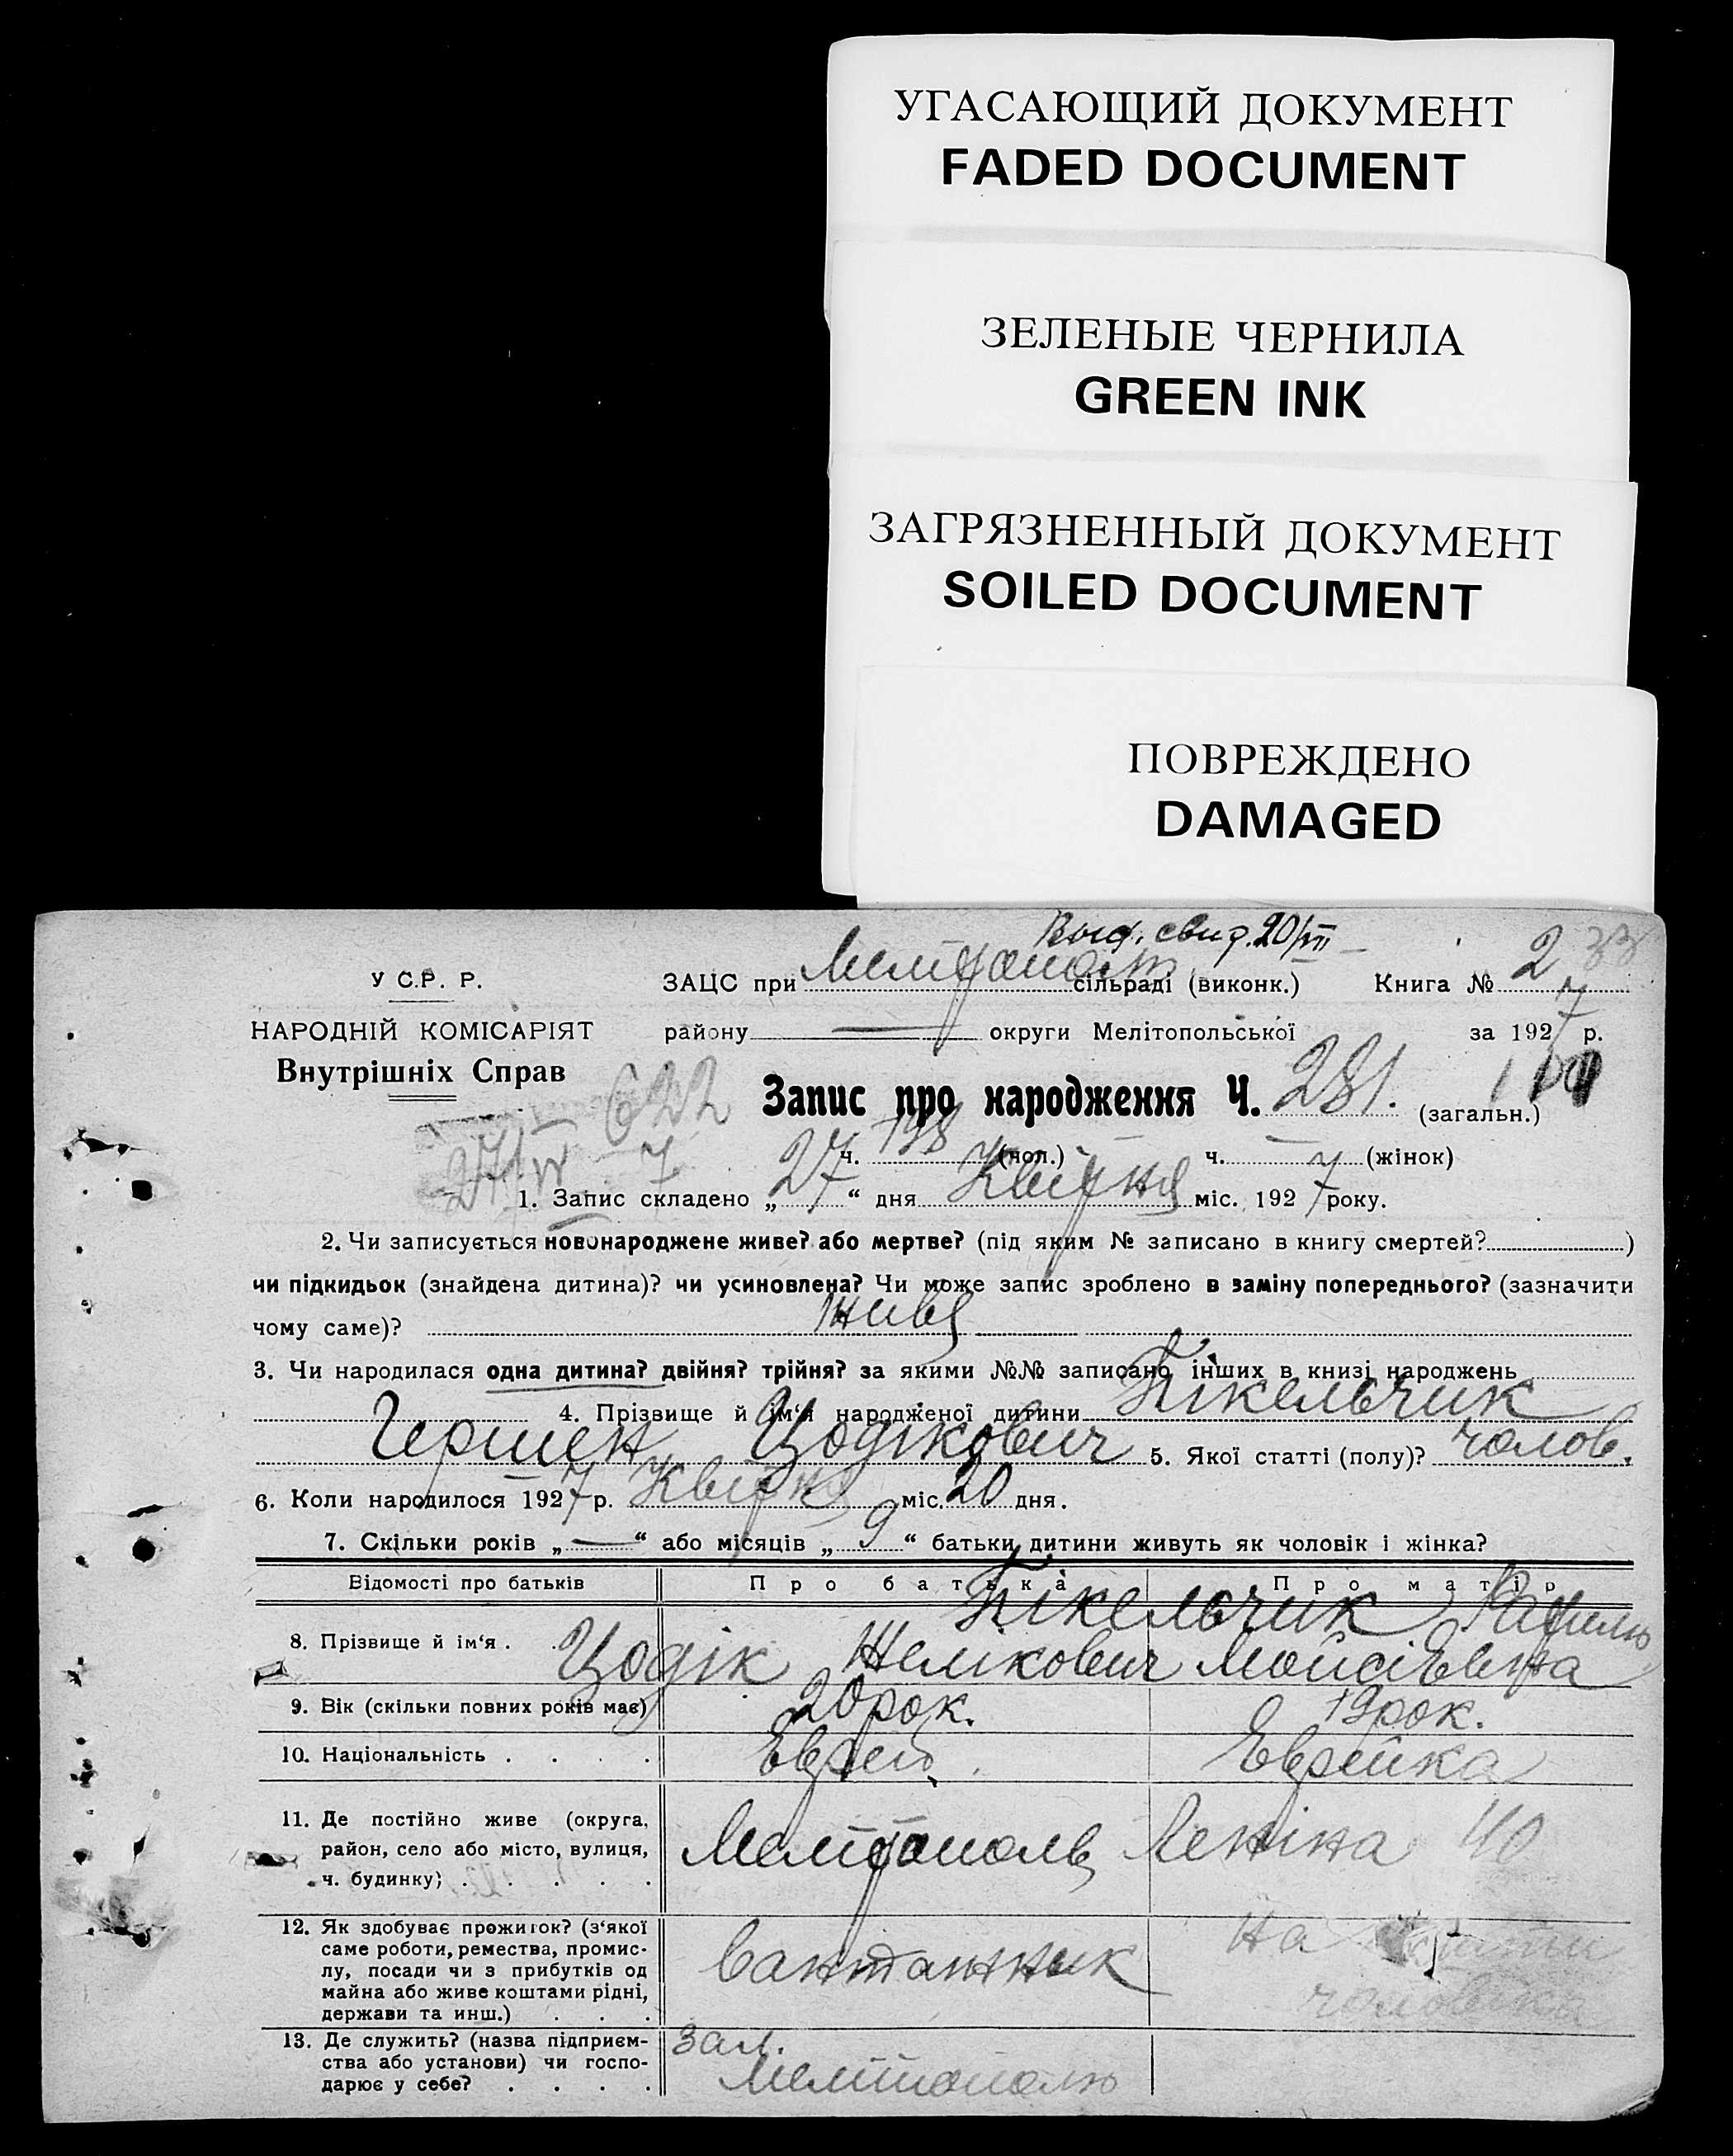 УГАСАЮЩИЙ ДОКУМЕНТ
FADED DOCUMENT
ЗЕЛЕНЫЕ ЧЕРНИЛА
GREEN INK
ЗАГРЯЗНЕННЫЙ ДОКУМЕНТ
SOILED DOCUMENT
ПОВРЕЖДЕНО
DAMAGED
свид. 20/VII
33
У С.Р. Р.
ЗАЦС при сільраді (виконк.) Книга № 2
НАРОДНІЙ КОМІСАРІЯТ
району округи Мелітопольської за 1927 р.
Внутрішніх Справ
622
Запис про народження Ч. 281. (загальн.)
ч. 138 (чол.) ч. — (жінок)
27/IV 7
1. Запис складено „27“ дня Квітня міс. 1927 року.
2. Чи записується новонароджене живе? або мертве? (під яким № записано в книгу смертей? )
чи підкидьок (знайдена дитина)? чи усиновлена? Чи може запис зроблено в заміну попереднього? (зазначити
чому саме)? живе
3. Чи народилася одна дитина? двійня? трійня? за якими №№ записано інших в книзі народжень
4. Прізвище й ім‘я народженої дитини Пікельчик
Гершен Цодікович 5. Якої статті (полу)? чолов.
6. Коли народилося 1927 р. Квітня міс. 20 дня.
7. Скільки років „—“ або місяців „9“ батьки дитини живуть як чоловік і жінка?
Відомості про батьків Про батька Про матір
Пікельчик
8. Прізвище й ім‘я . . Цодік Желікович Мойсієвна
9. Вік (скільки повних років має) 20 рок. 19 рок.
10. Національність . . . . Еврей. Еврейка
11. Де постійно живе (округа,
район, село або місто, вулиця, Мелітополь Леніна 40
ч. будинку) . . . . .
12. Як здобуває прожиток? (з‘якої
саме роботи, ремества, промис-
лу, посади чи з прибутків од
майна або живе коштами рідні,
держави та инш.) . . .
Вантажник
На
чоловіка
13. Де служить? (назва підприєм-
ства або установи) чи госпо-
дарює у себе? . . . .
зал.
Мелітополю